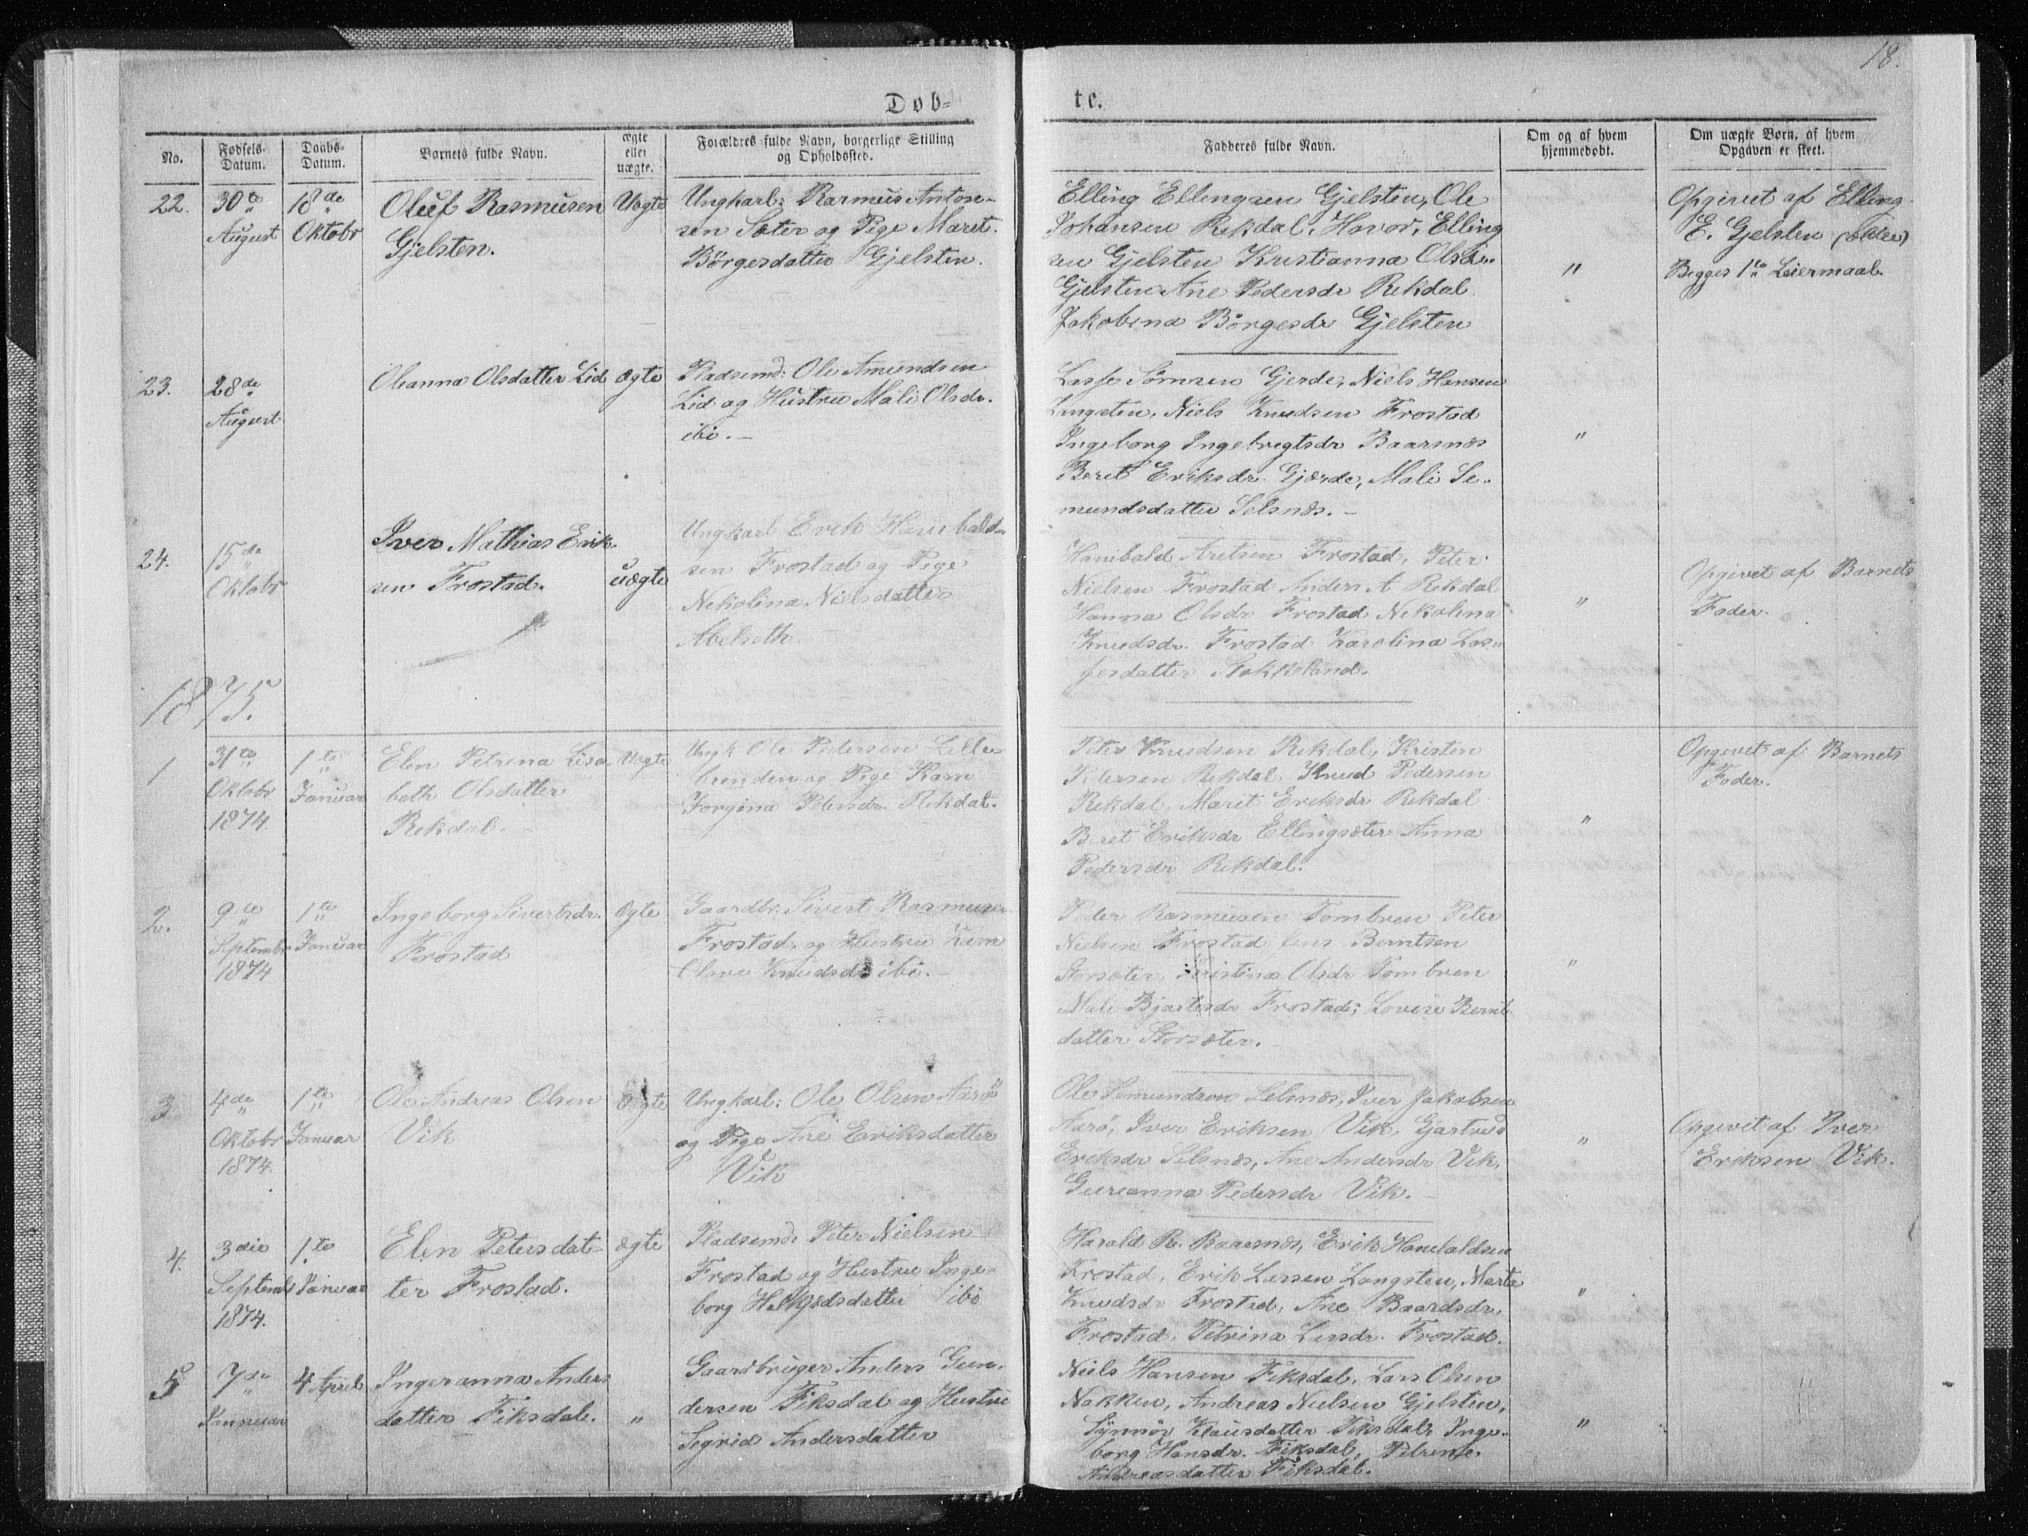 18.
Døb=
te.
No.
Fødsels-
Datum.
Daabs-
Datum.
Barnets fulde Navn.
ægte
eller
uægte.
Forældres fulde Navn, borgerlige Stilling
og Opholdssted.
Fadderes fulde Navn.
Om og af hvem
hjemmedøbt.
Om uægte Børn, af hvem
Opgaven er skeet.
22.
30te
August
18de
Oktobr
Oluf Rasmusen
Gjelsten.
Uægte
Ungkarl: Rasmus Anton-
sen Sæter og Pige Maret
Börgesdatter Gjelsten.
Elling Ellengsen Gjelsten, Ole
Johansen Rekdal, Havor, Elling
sen Gjelsten Kristianna Olsdr.
Gjelsten Ane Pedersdr Rekdal
Jakobina Börgesdr Gjelsten
"
Opgivet af Elling
E. Gjelsten (ældre)
Begges 1te Leiermaal.
23.
28de
August
Oleanna Olsdatter Lid
ægte
Pladsemd: Ole Amundsen
Lid og Hustru Mali Olsdr.
ibi. —
Lasse Sörnsen Gjerde, Niels Hansen
Langsten, Niels Knudsen Frostad
Ingeborg Ingebregtsdr Baarsnæs
Beret Eriksdr. Gjærde, Mali Se-
mundsdatter Selsnæs. —
"
24.
15de
Oktobr
Iver Mathias Erik
sen Frostad.
uægte
Ungkarl Erik Hanibald-
sen Frostad og Pige
Nekolina Nielsdatter
Abelseth.
Hanibald Aretsen Frostad, Peter
Nielsen Frostad Anders A Rekdal
Hanna Olsdr Frostad Nekolina
Knudsdr. Frostad Karolina Las-
sesdatter Stokkeland.
"
Opgivet af Barnets
Fader.
1875.
1
31te
Oktobr
1874.
1te
Januar
Elen Petrina Lisa
beth Olsdatter
Rekdal.
Uægte
Ungk Ole Pedersen Lille-
bunden og Pige Karn
Jorgina Petersdr Rekdal.
Peter Knudsen Rekdal, Kristen
Petersen Rekdal, Knud Pedersen
Rekdal, Maret Eriksdr Rekdal
Beret Eriksdr Ellingsæter Anna
Pedersdr Rekdal.
"
Opgivet af Barnets
Fader.
2.
9de
Septembr
1874
1te
Januar
Ingeborg Sivertsdr.
Frostad
ægte
Gaardbr. Sivert Rasmusen
Frostad og Hustru Karn
Olave Knudsdr ibi.
Peder Rasmusen Tombren Peter
Nielsen Frostad Jens Berntsen
Storsæter, Kristina Olsdr Tombren
Mali Bjartesdr Frostad; Lovise Bernt
datter Storsæter.
"
3
4de
Oktobr
1874
1te
Januar
Ole Andreas Olsen
Vik
Uægte
Ungkarl: Ole Olsen Aarö
og Pige Ane Eriksdatter
Vik
Ole Semundsen Selsnæs, Iver Jakobsen
Aarö, Iver Eriksen Vik, Gjartrud
Eriksdr Selsnæs, Ane Andersdr Vik,
Gureanna Pedersdr Vik.
"
Opgivet af Iver
Eriksen Vik.
4.
3die
Septembr
1874.
1te
Januar
Elen Petersdat-
ter Frostad.
ægte
Pladsemd: Peter Nielsen
Frostad og Hustru Inge-
borg Halkjelsdatter ibi
Harald R. Baarsnæs, Erik Hanebaldsen
Frostad, Erik Larsen Langsten, Marta
Knudsdr Frostad, Ane Baardsdr,
Frostad. Petrina Larsdr. Frostad.
"
5
7de
Januar
4 April
Ingeranna Anders
datter Fiksdal.
"
Gaardbruger Anders Gun-
dersen Fiksdal og Hustru
Segrid Andersdatter
Niels Hansen Fiksdal, Lars Olsen
Nakken, Andreas Nielsen Gjelsten,
Synnöv Klausdatter Fiksdal, Inge-
borg Hansdr. Fiksdal, Petrine
Andreasdatter Fiksdal.
"